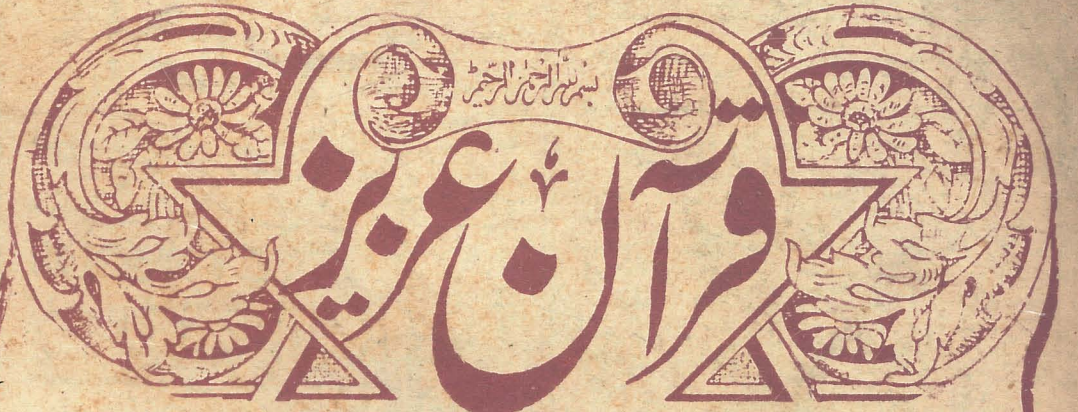 بسم اللہ الرحمن الرحیم
قرآن عزیز